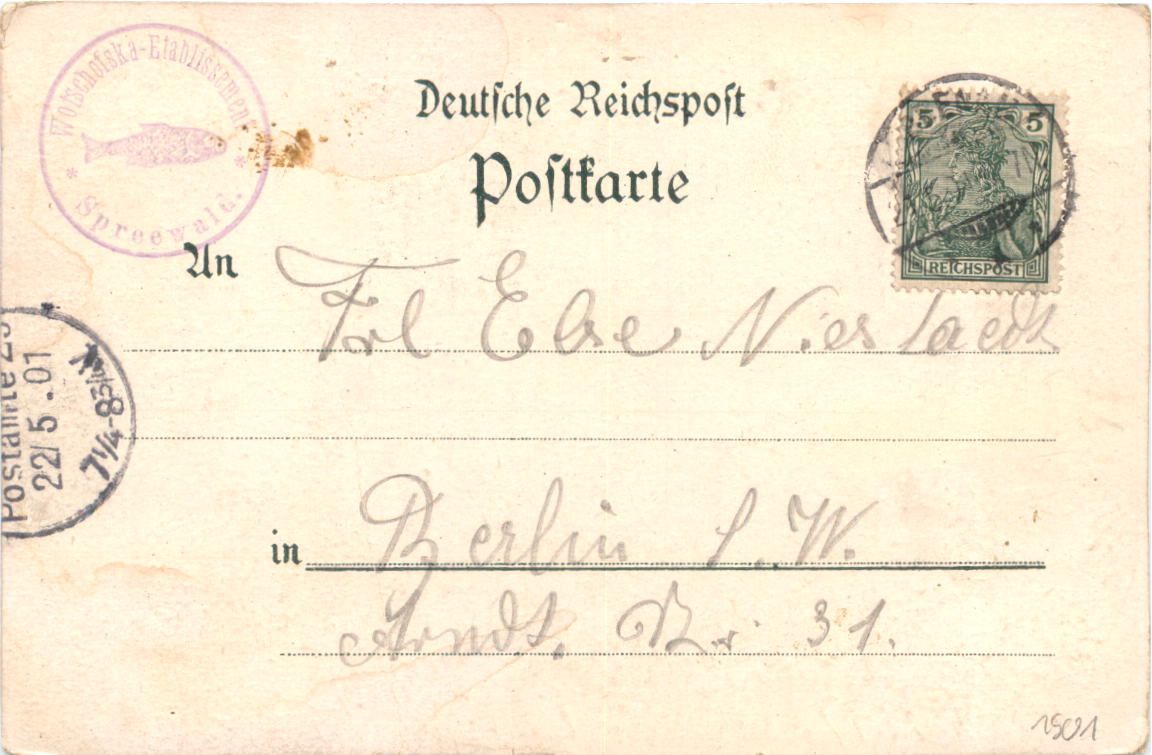 Wotschofska-Etablissement
* Spreewald. *
Deutsche Reichspost
Postkarte
5 5
REICHSPOST
An Frl Else Niestaedt
22/5.01
7¼-8¾N
in Berlin S.W.
Arndt. Nr. 31.
1901